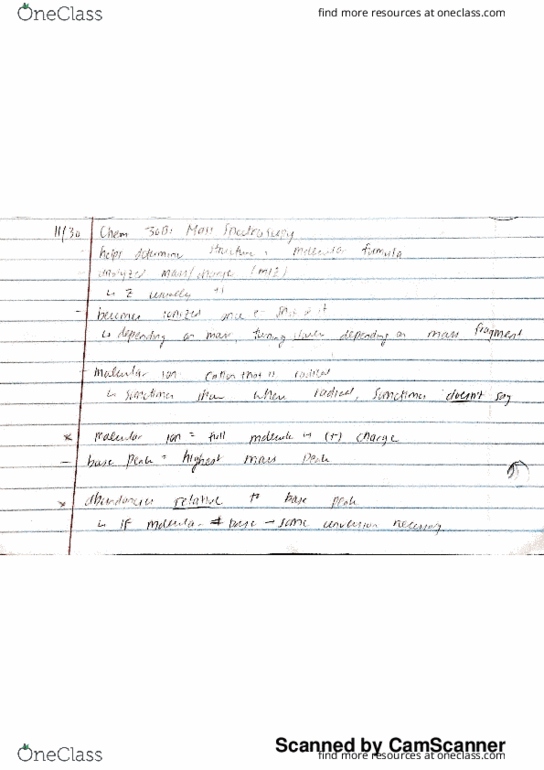 OneClass find more resources at oneclass.com
11/30 Chem 30B: Mass Spectroscopy
- helps determine structure, molecular formula
- analyzed mass/charge (m/z)
↳ z usually +1
- becomes ionized once e-
↳ depending on mass, depending on mass fragment
- molecular ion: cation that is radical
↳ sometimes show when radical, sometimes doesn't say
* molecular ion = full molecule (+) charge
- base peak = highest mass peak
* abundancies relative to base peak
↳ if molecular ≠ base → some conversion necessary
Scanned by CamScanner
OneClass find more resources at oneclass.com